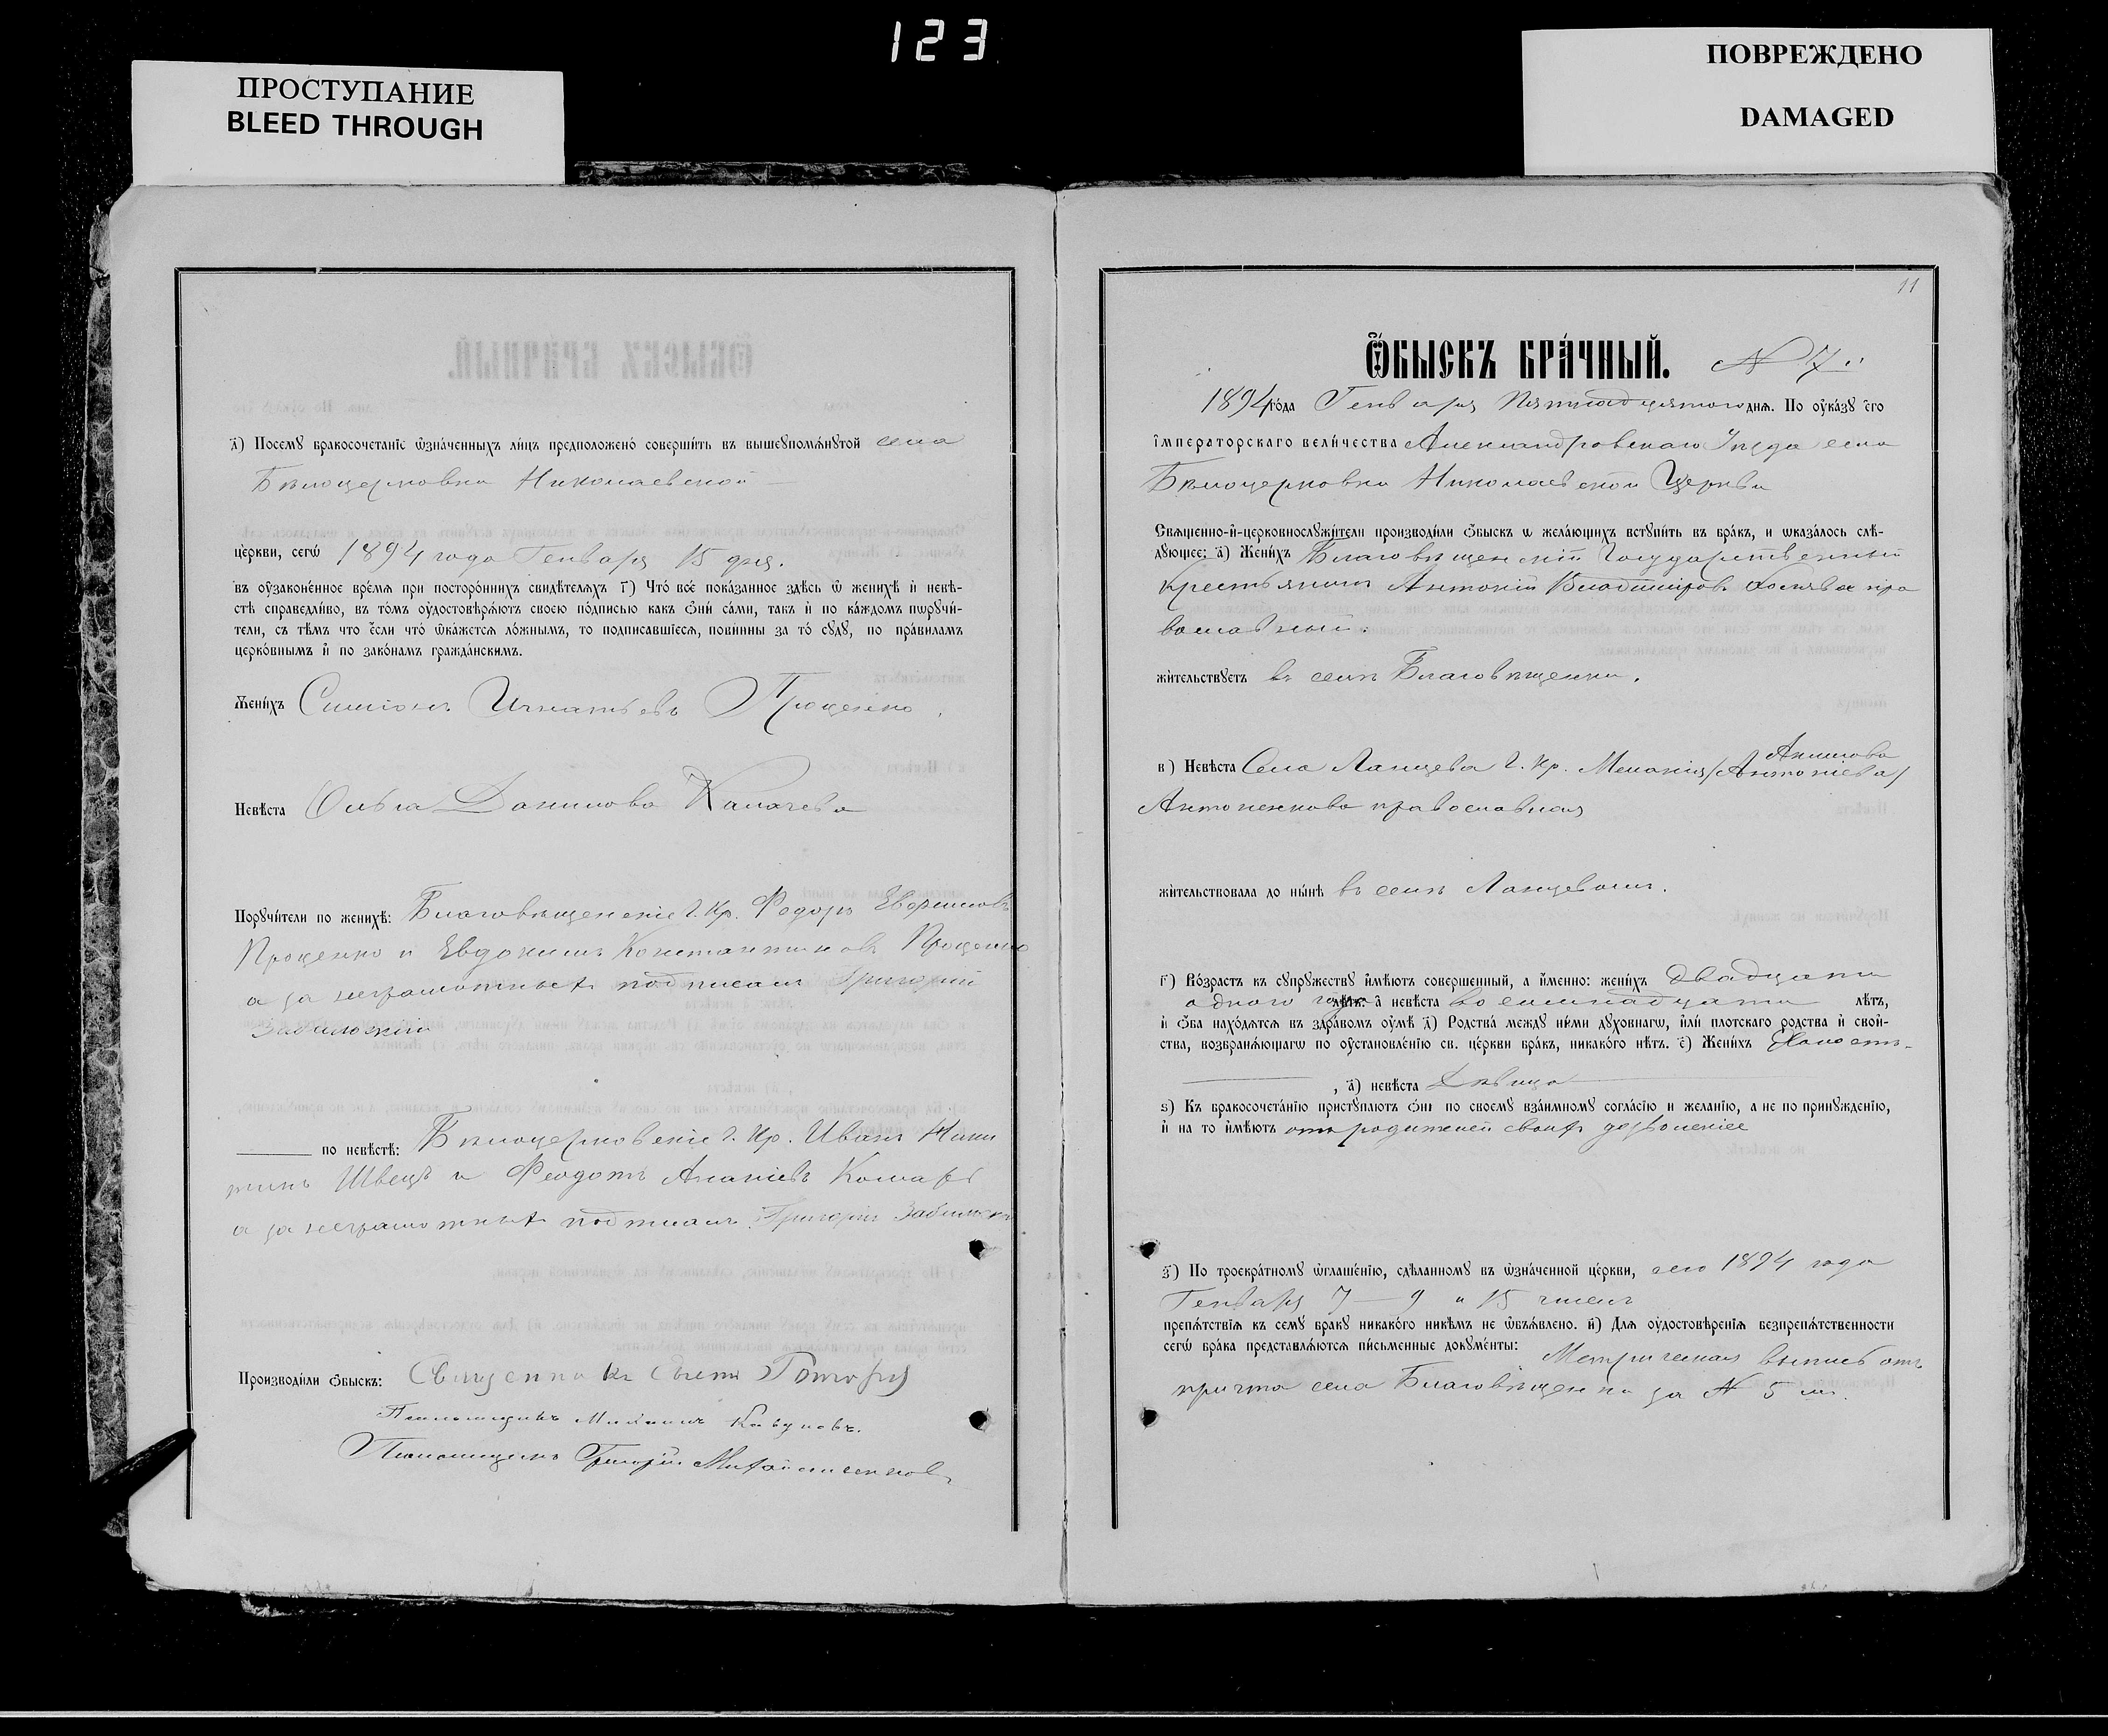 123
ПРОСТУПАНИЕ
BLEED THROUGH
ПОВРЕЖДЕНО
DAMAGED
д҃) Посемꙋ бракосочетанїе ѿзнáченныхъ ли́цъ предположенó соверши́ть въ вышеꙋпомѧ́нꙋтой села
Бѣлоцерковки Николаевской
це́ркви, сегѡ̀ 1894 года Генваря 15 дня.
въ оу҆зако́ненное вре́мѧ при посторо́ннихъ свидѣ́телѧхъ г҃) Что́ все́ пока́занное здѣ́сь ѿ женихѣ̀ и҆ невѣ́-
стѣ справедли́во, въ то́мъ оу҆достовѣрѧ́ютъ своею по́дписью какъ ѻ҆ни́ са́ми, такъ и҆ по ка́ждомъ пѡрꙋчи́-
тели, съ тѣ́мъ что є҆́сли что́ ѿка́жетсѧ ло́жнымъ, то подписавшїесѧ, пови́нны за то́ сꙋдꙋ̀, по пра́виламъ
церко́внымъ и҆ по зако́намъ гражда́нскимъ.
Жени́хъ Симіонъ Игнатьевъ Проценко.
Невѣ́ста Ольга Данилова Калачева
Порꙋчи́тели по женихѣ̀: Благовѣщенскіе Г. Кр. Федоръ
Проценко и Евдокимъ Константиновъ Проценко
а за неграмотныхъ подписалъ Григорій
по невѣ́стѣ: Бѣлоцерковскіе Г. Кр. Иванъ Ники
тинъ Швецъ и Феодотъ Ананіевъ Комаръ
а за неграмотныхъ подписалъ Григорій
Производи́ли ѻ҆́быскъ: Священникъ
Псаломщикъ Михаилъ
Псаломщикъ Григорій
11
Ѻ҆́БЫСКЪ БРА́ЧНЫЙ. N 7й
1894 го́да Генваря Пятнадцятого днѧ. По оу҆ка́зꙋ є҆гѡ̀
і҆мператорскаго вели́чества Александровскаго Уезда села
Бѣлоцерковки Николаевской Церкви
Свѧщенно-и҆-церковнослꙋжи́тели производи́ли ѻ҆́быскъ ѡ жела́ющихъ встꙋпи́ть въ бра́къ, и ѡказа́лось слѣ́-
дꙋющее: а҃) Жени́хъ Благовѣщенскій Государственный
Крестьянинъ Антоній Владиміров. пра
вославный.
жи́тельствꙋетъ въ селѣ Благовѣщенки.
в҃) Невѣ́ста Села Ланцева Г. Кр. Меланія (Антоніева)
Акимова
Антоненкова православная
жи́тельствовала до ны́нѣ въ селѣ Ланцевомъ.
г҃) Во́зрастъ къ сꙋпрꙋжествꙋ и҆мѣ́ютъ соверше́нный, а и҆́менно: жени́хъ двадцати
одного года лѣтъ: а҆ невѣ́ста восемнадцати лѣтъ,
и҆ ѻ҆́ба нахо́дѧтсѧ въ здра́вомъ оу҆мѣ̀ д҃) Родства̀ междꙋ ни́ми дꙋхо́внагѡ, и҆лѝ пло́тскаго родства и҆ свои́-
ства, возбранѧ́ющагѡ по оу҆становле́нїю св. це́ркви бра́къ, никако́го нѣ́тъ. е҃) Жени́хъ Холостъ
, а҃) невѣ́ста Дѣвица
ѕ҃) Къ бракосочета́нїю пристꙋпа́ютъ ѻ҆нѝ по своемꙋ̀ взаи́мномꙋ согла́сїю и жела́нїю, а не по принꙋжде́нїю,
и҆ на то и҆мѣ́ютъ отъ родителей своихъ дозволеніе
з҃) По троекра́тномꙋ ѡ҆глаше́нїю, сдѣ́ланномꙋ въ ѡ҆зна́ченной це́ркви, сего 1894 года
Генваря 7 — 9 и 15 чиселъ
препѧ́тствїѧ къ семꙋ̀ бракꙋ никако́го никѣ́мъ не ѡ҆бъѧ́влено. и҃) Длѧ оу҆достовѣ́ренїѧ безпрепѧ́тственности
сегѡ̀ бра́ка представлѧ́ютсѧ пи́сьменные докꙋме́нты: Метрическая выпись отъ
причта села Благовѣщенки за N 5 м.